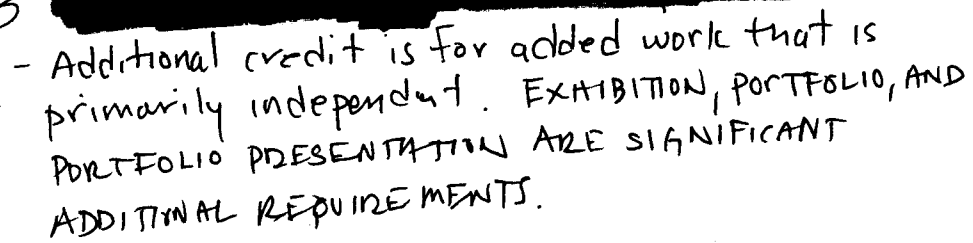 - Additional credit is for added work that is
primarily independent. EXHIBITION, PORTFOLIO, AND
PORTFOLIO PRESENTATION ARE SIGNIFICANT
ADDITIONAL REQUIREMENTS.